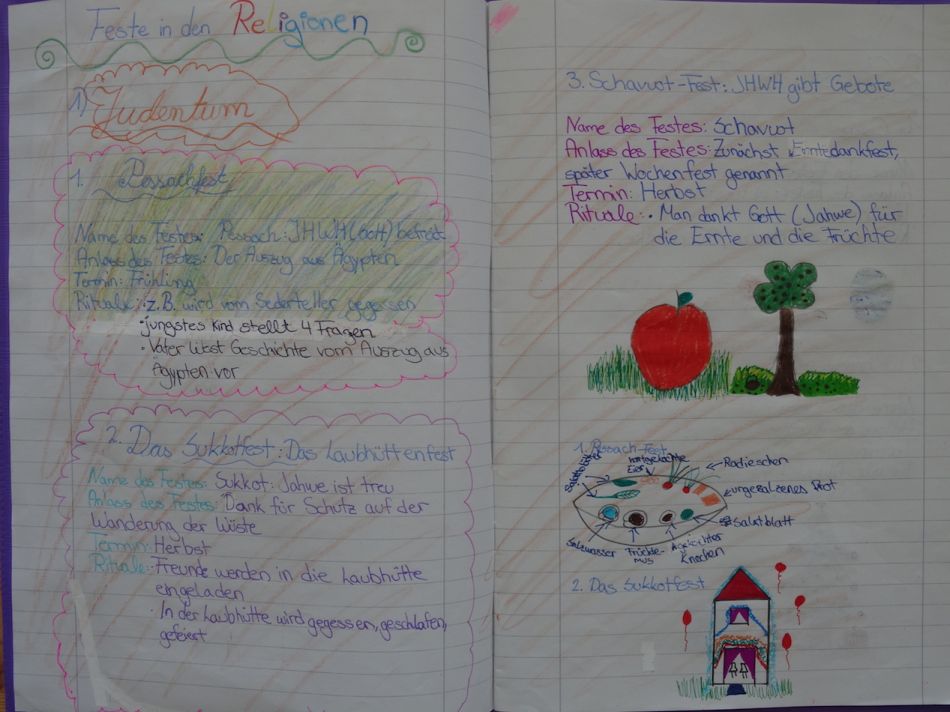 Feste in den Religionen
1) Judentum
1. Pessachfest
Name des Festes: Pessach: JHWH (Gott) befreit
Anlass des Festes: Der Auszug aus Ägypten
Termin: Frühling
Rituale: · z.B. wird vom Sederteller gegessen
· jüngstes Kind stellt 4 Fragen
· Vater liest Geschichte vom Auszug aus
Ägypten vor
2. Das Sukkotfest: Das Laubhüttenfest
Name des Festes: Sukkot: Jahwe ist treu
Anlass des Festes: Dank für Schutz auf der
Wanderung der Wüste
Termin: Herbst
Rituale: · Freunde werden in die Laubhütte
eingeladen
· In der Laubhütte wird gegessen, geschlafen,
gefeiert
3. Schawuot-Fest: JHWH gibt Gebote
Name des Festes: Schawuot
Anlass des Festes: Zunächst Erntedankfest,
später Wochenfest genannt
Termin: Herbst
Rituale: · Man dankt Gott (Jahwe) für
die Ernte und die Früchte
1. Pessach-Fest
hartgekochte
Eier
Radieschen
ungesalzenes Brot
Salatblatt
Salzwasser
Früchte-
mus
Knochen
2. Das Sukkotfest